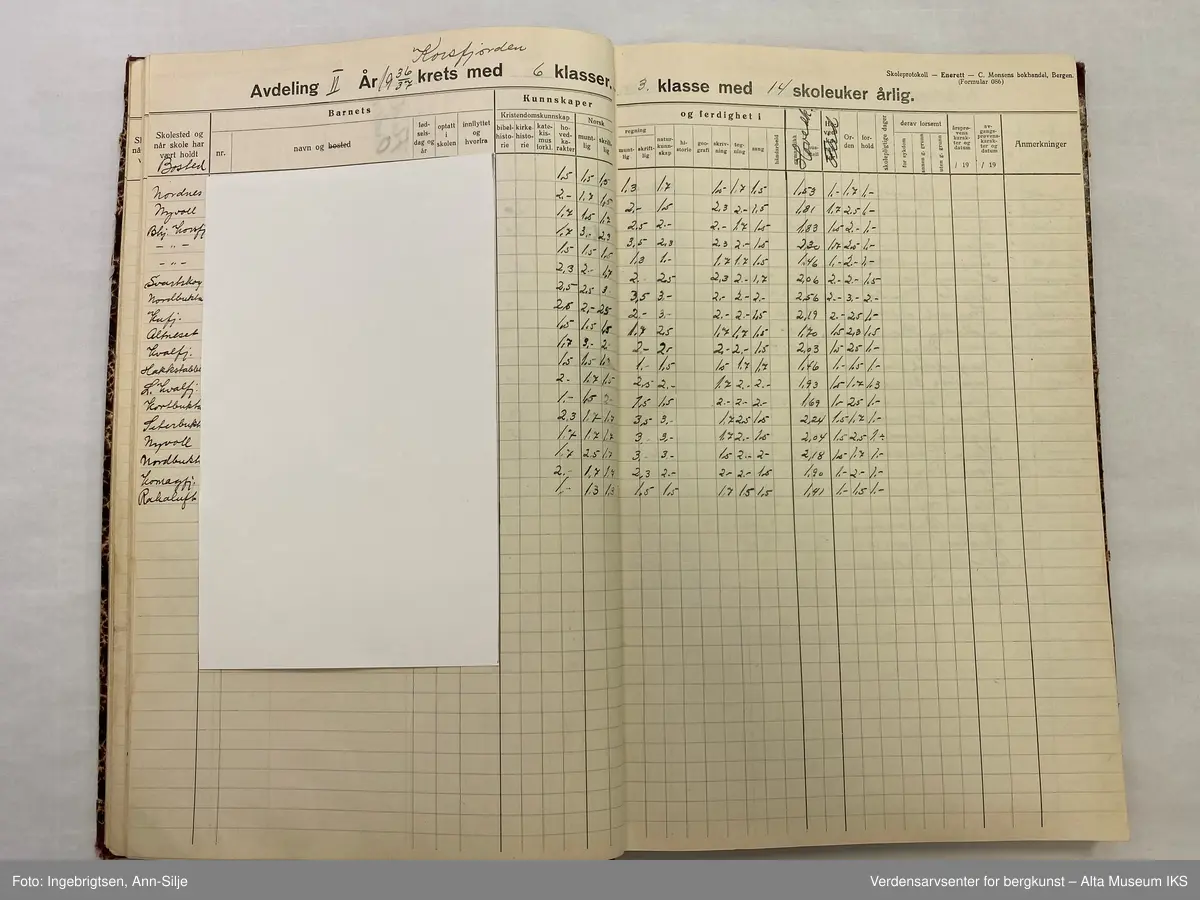 Korsfjorden
Avdeling II År 1936/37 krets med 6 klasser. 3. klasse med 14 skoleuker årlig.
Skoleprotokoll — Enerett — C. Monsens bokhandel, Bergen.
(Formular 086)
Barnets
Kunnskaper
og ferdighet i
Skolested og når skole har vært holdt
Bosted
nr.
navn og bosted
fødselsdag og år
optatt i skolen
innflyttet og hvorfra
Kristendomskunnskap
bibelhistorie
kirkehistorie
katekismusforkl.
hovedkarakter
Norsk
muntlig
skriftlig
regning
muntlig
skriftlig
naturkunnskap
historie
geografi
skrivning
tegning
sang
håndarbeid
Orden
forhold
skolepliktige dager
derav forsømt
for sykdom
annen g. grunn
uten g. grunn
/ 19
/ 19
Anmerkninger
Nordnes 1,5 1,5 1,5 1,3 1,7 1,5 1,7 1,5 1,53 1.- 1,7 1.-
Nyvoll 2.- 1,7 1,5 2.- 1,5 2,3 2.- 1,5 1,81 1,7 2,5 1.-
1,7 1,5 1,7 2,5 2.- 2.- 1,7 1,5 1,83 1,5 2.- 1.-
— " — 1,7 3.- 2,3 3,5 2,3 2,3 2.- 1,5 2,30 1,7 2,5 1.-
— " — 1,5 1,5 1,5 1,3 1.- 1,7 1,7 1,5 1,46 1.- 2.- 1.-
Svartskog 2,3 2.- 1,7 2. 2,5 2,3 2.- 1,7 2,06 2.- 2.- 1,5
Nordbukta 2,5 2,5 3 3,5 3.- 2.- 2.- 2.- 2,56 2.- 3.- 2.-
2,5 2.- 2,5 2.- 3.- 2.- 2.- 1,5 2,19 2.- 2,5 1.-
Altneset 1,5 1,5 1,5 1,7 2,5 1,7 1,7 1,5 1,70 1,5 2,3 1,5
Kvalfj. 1,7 3.- 2. 2.- 2.- 2.- 2.- 1,5 2,03 1,5 2,5 1.-
Hakkstabben 1,5 1,5 1.- 1,5 1,5 1,7 1,7 1,46 1.- 1,5 1.-
L. Kvalfj. 2.- 1,7 1,5 2,5 2.- 1,7 2.- 2.- 1,93 1,5 1,7 1,3
1.- 1,5 2.- 1,5 1,5 2.- 2.- 2.- 1,69 1.- 2,5 1.-
2,3 1,7 1,7 3,5 3.- 1,7 2,5 1,5 2,24 1,5 1,7 1.-
Nyvoll 1,7 1,7 1,7 3. 3.- 1,7 2.- 1,5 2,04 1,5 2,5
Nordbukt 1,7 2,5 1,7 3.- 3.- 1,5 2.- 2.- 2,18 1,5 1,7 1.-
Komagfj. 2.- 1,7 2,3 2.- 2.- 2.- 1,5 1,90 1.- 2.- 1.-
Rakaluft 1.- 1,3 1,3 1,5 1,5 1,7 1,5 1,5 1,41 1.- 1,5 1.-
Foto: Ingebrigtsen, Ann-Silje
Verdensarvsenter for bergkunst – Alta Museum IKS